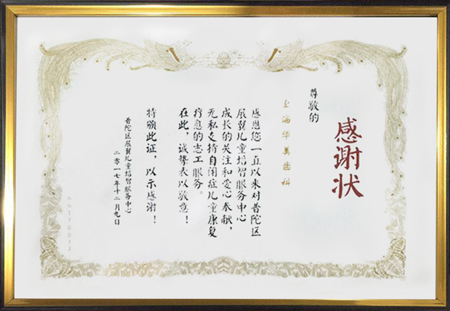 感谢状
尊敬的
上海华美齿科
感恩您一直以来对普陀区
展翼儿童培智服务中心
成长的关注和爱心奉献，
无私支持自闭症儿童康复
疗愈的志工服务。
在此，诚挚表以敬意！
特颁此证，以示感谢！
普陀区展翼儿童培智服务中心
二零一七年十二月九日